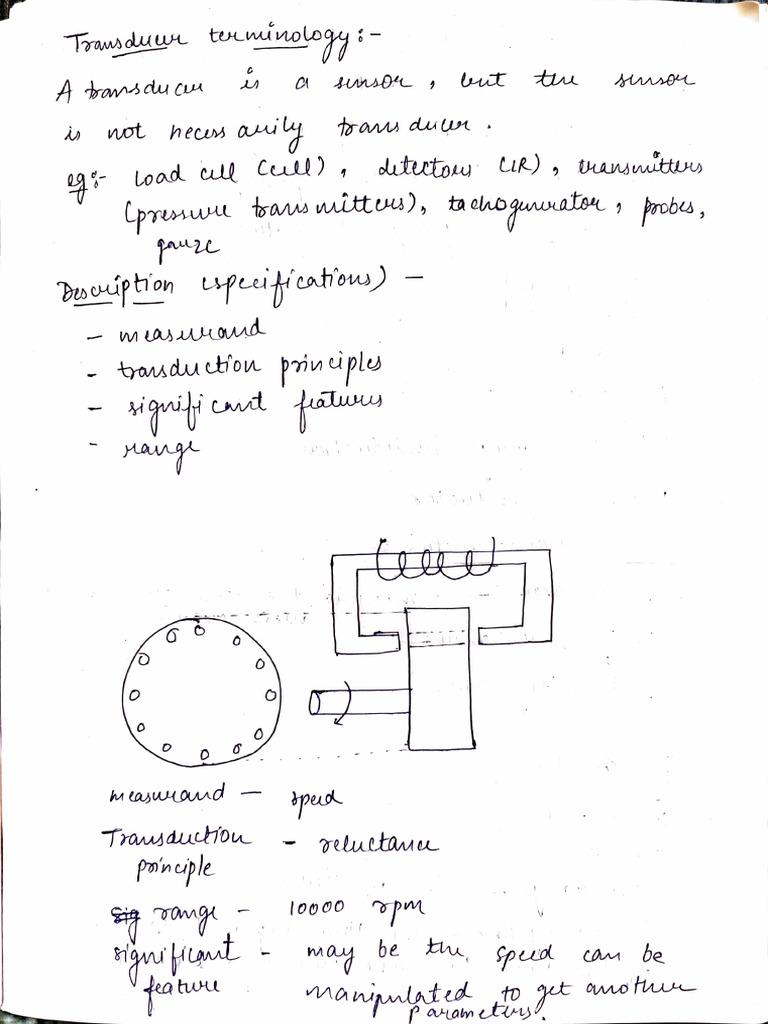 Transducer terminology:-
A transducer is a sensor, but the sensor
is not necessarily transducer.
eg:- load cell (cell), detectors (IR), transmitters
(pressure transmitters), tachogenerator, probes,
gauze
Description (specifications) -
- measurand
- transduction principles
- significant features
- range
measurand - speed
Transduction - reluctance
principle
range - 10000 rpm
significant - may be the speed can be
feature manipulated to get another
parameters.